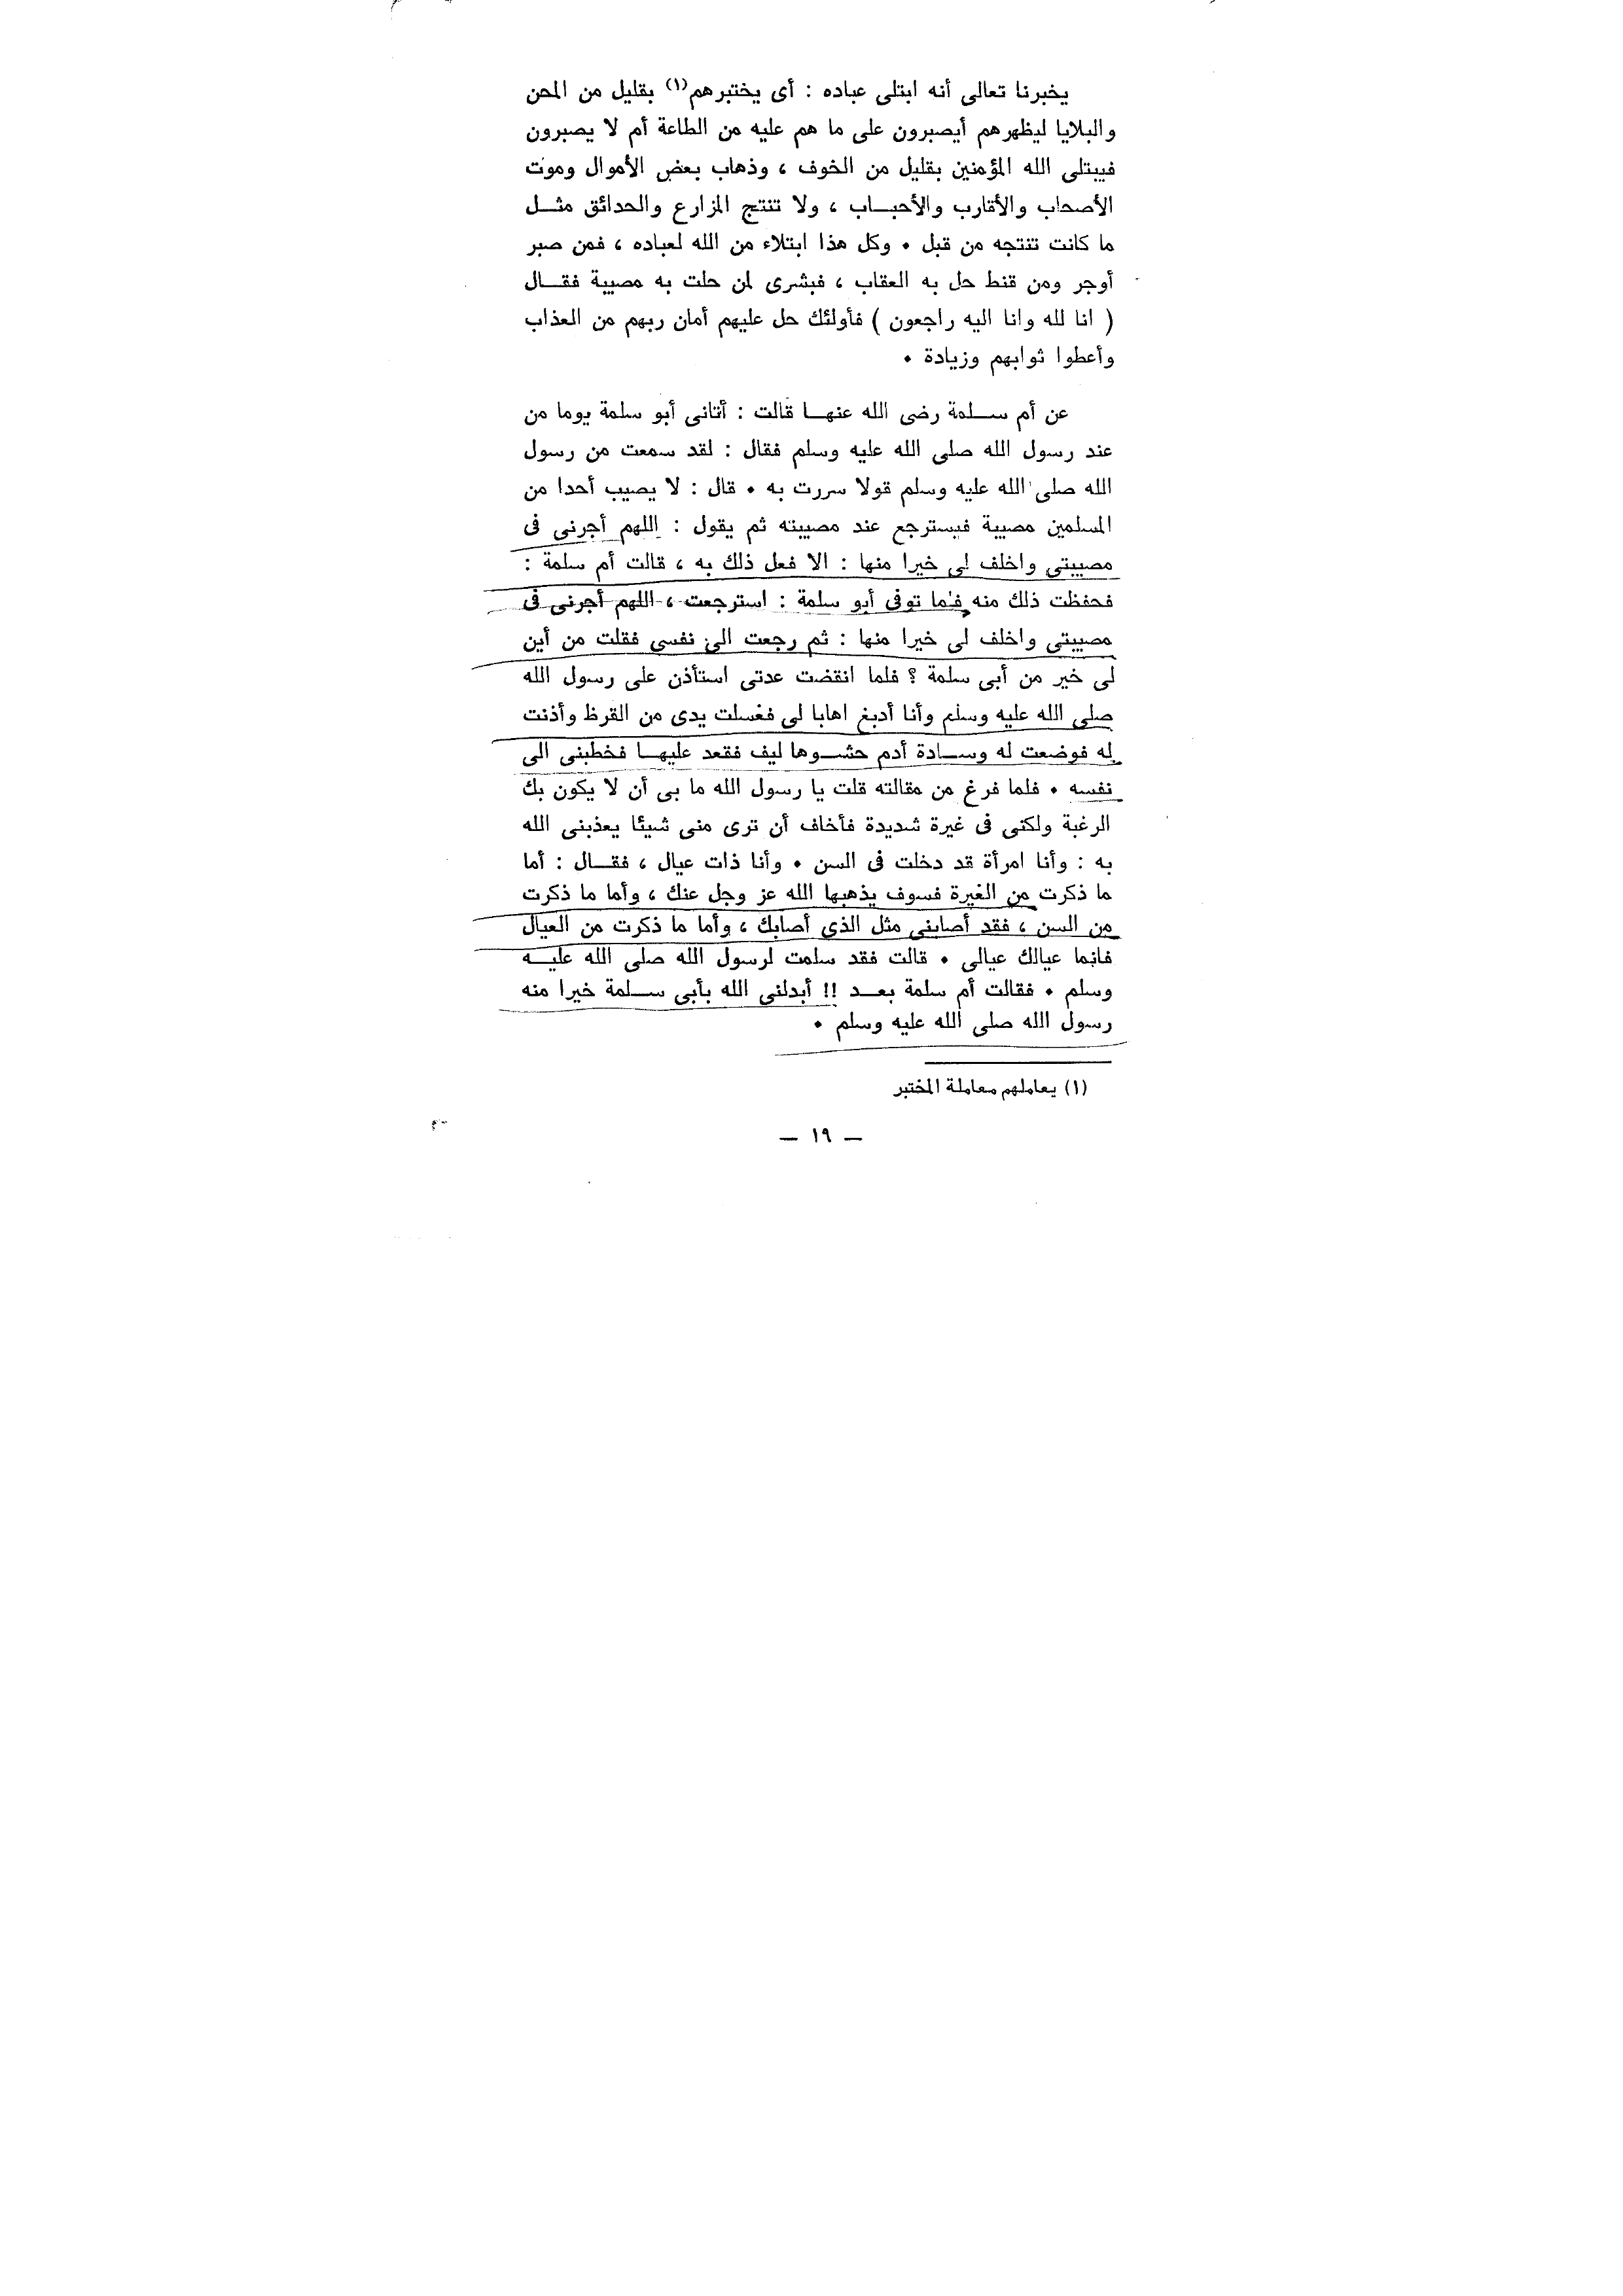 يخبرنا تعالى أنه ابتلى عباده : أى يختبرهم(١) بقليل من المحن
والبلايا ليظهرهم أيصبرون على ما هم عليه من الطاعة أم لا يصبرون
فيبتلى الله المؤمنين بقليل من الخوف ، وذهاب بعض الأموال وموت
الأصحاب والأقارب والأحبـــاب ، ولا تنتج المزارع والحدائق مثــل
ما كانت تنتجه من قبل ٠ وكل هذا ابتلاء من الله لعباده ، فمن صبر
أوجر ومن قنط حل به العقاب ، فبشرى لمن حلت به مصيبة فقــال
( انا لله وانا اليه راجعون ) فأولئك حل عليهم أمان ربهم من العذاب
وأعطوا ثوابهم وزيادة ٠
عن أم ســلمة رضى الله عنهــا قالت : أتانى أبو سلمة يوما من
عند رسول الله صلى الله عليه وسلم فقال : لقد سمعت من رسول
الله صلى الله عليه وسلم قولا سررت به ٠ قال : لا يصيب أحدا من
المسلمين مصيبة فيسترجع عند مصيبته ثم يقول : اللهم أجرنى فى
مصيبتى واخلف لى خيرا منها : الا فعل ذلك به ، قالت أم سلمة :
فحفظت ذلك منه فلما توفى أبو سلمة : استرجعت ، اللهم أجرنى فى
مصيبتى واخلف لى خيرا منها : ثم رجعت الى نفسى فقلت من أين
لى خير من أبى سلمة ؟ فلما انقضت عدتى استأذن على رسول الله
صلى الله عليه وسلم وأنا أدبغ اهابا لى فغسلت يدى من القرظ وأذنت
له فوضعت له وســادة أدم حشــوها ليف فقعد عليهــا فخطبنى الى
نفسه ٠ فلما فرغ من مقالته قلت يا رسول الله ما بى أن لا يكون بك
الرغبة ولكنى فى غيرة شديدة فأخاف أن ترى منى شيئا يعذبنى الله
به : وأنا امرأة قد دخلت فى السن ٠ وأنا ذات عيال ، فقــال : أما
ما ذكرت من الغيرة فسوف يذهبها الله عز وجل عنك ، وأما ما ذكرت
من السن ، فقد أصابنى مثل الذى أصابك ، وأما ما ذكرت من العيال
فانما عيالك عيالى ٠ قالت فقد سلمت لرسول الله صلى الله عليــه
وسلم ٠ فقالت أم سلمة بعــد !! أبدلنى الله بأبى ســلمة خيرا منه
رسول الله صلى الله عليه وسلم ٠
(١) يعاملهم معاملة المختبر
— ١٩ —